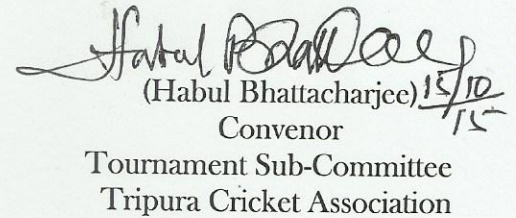 Habul Bhattacharjee
(Habul Bhattacharjee) 15/10/15
Convenor
Tournament Sub-Committee
Tripura Cricket Association